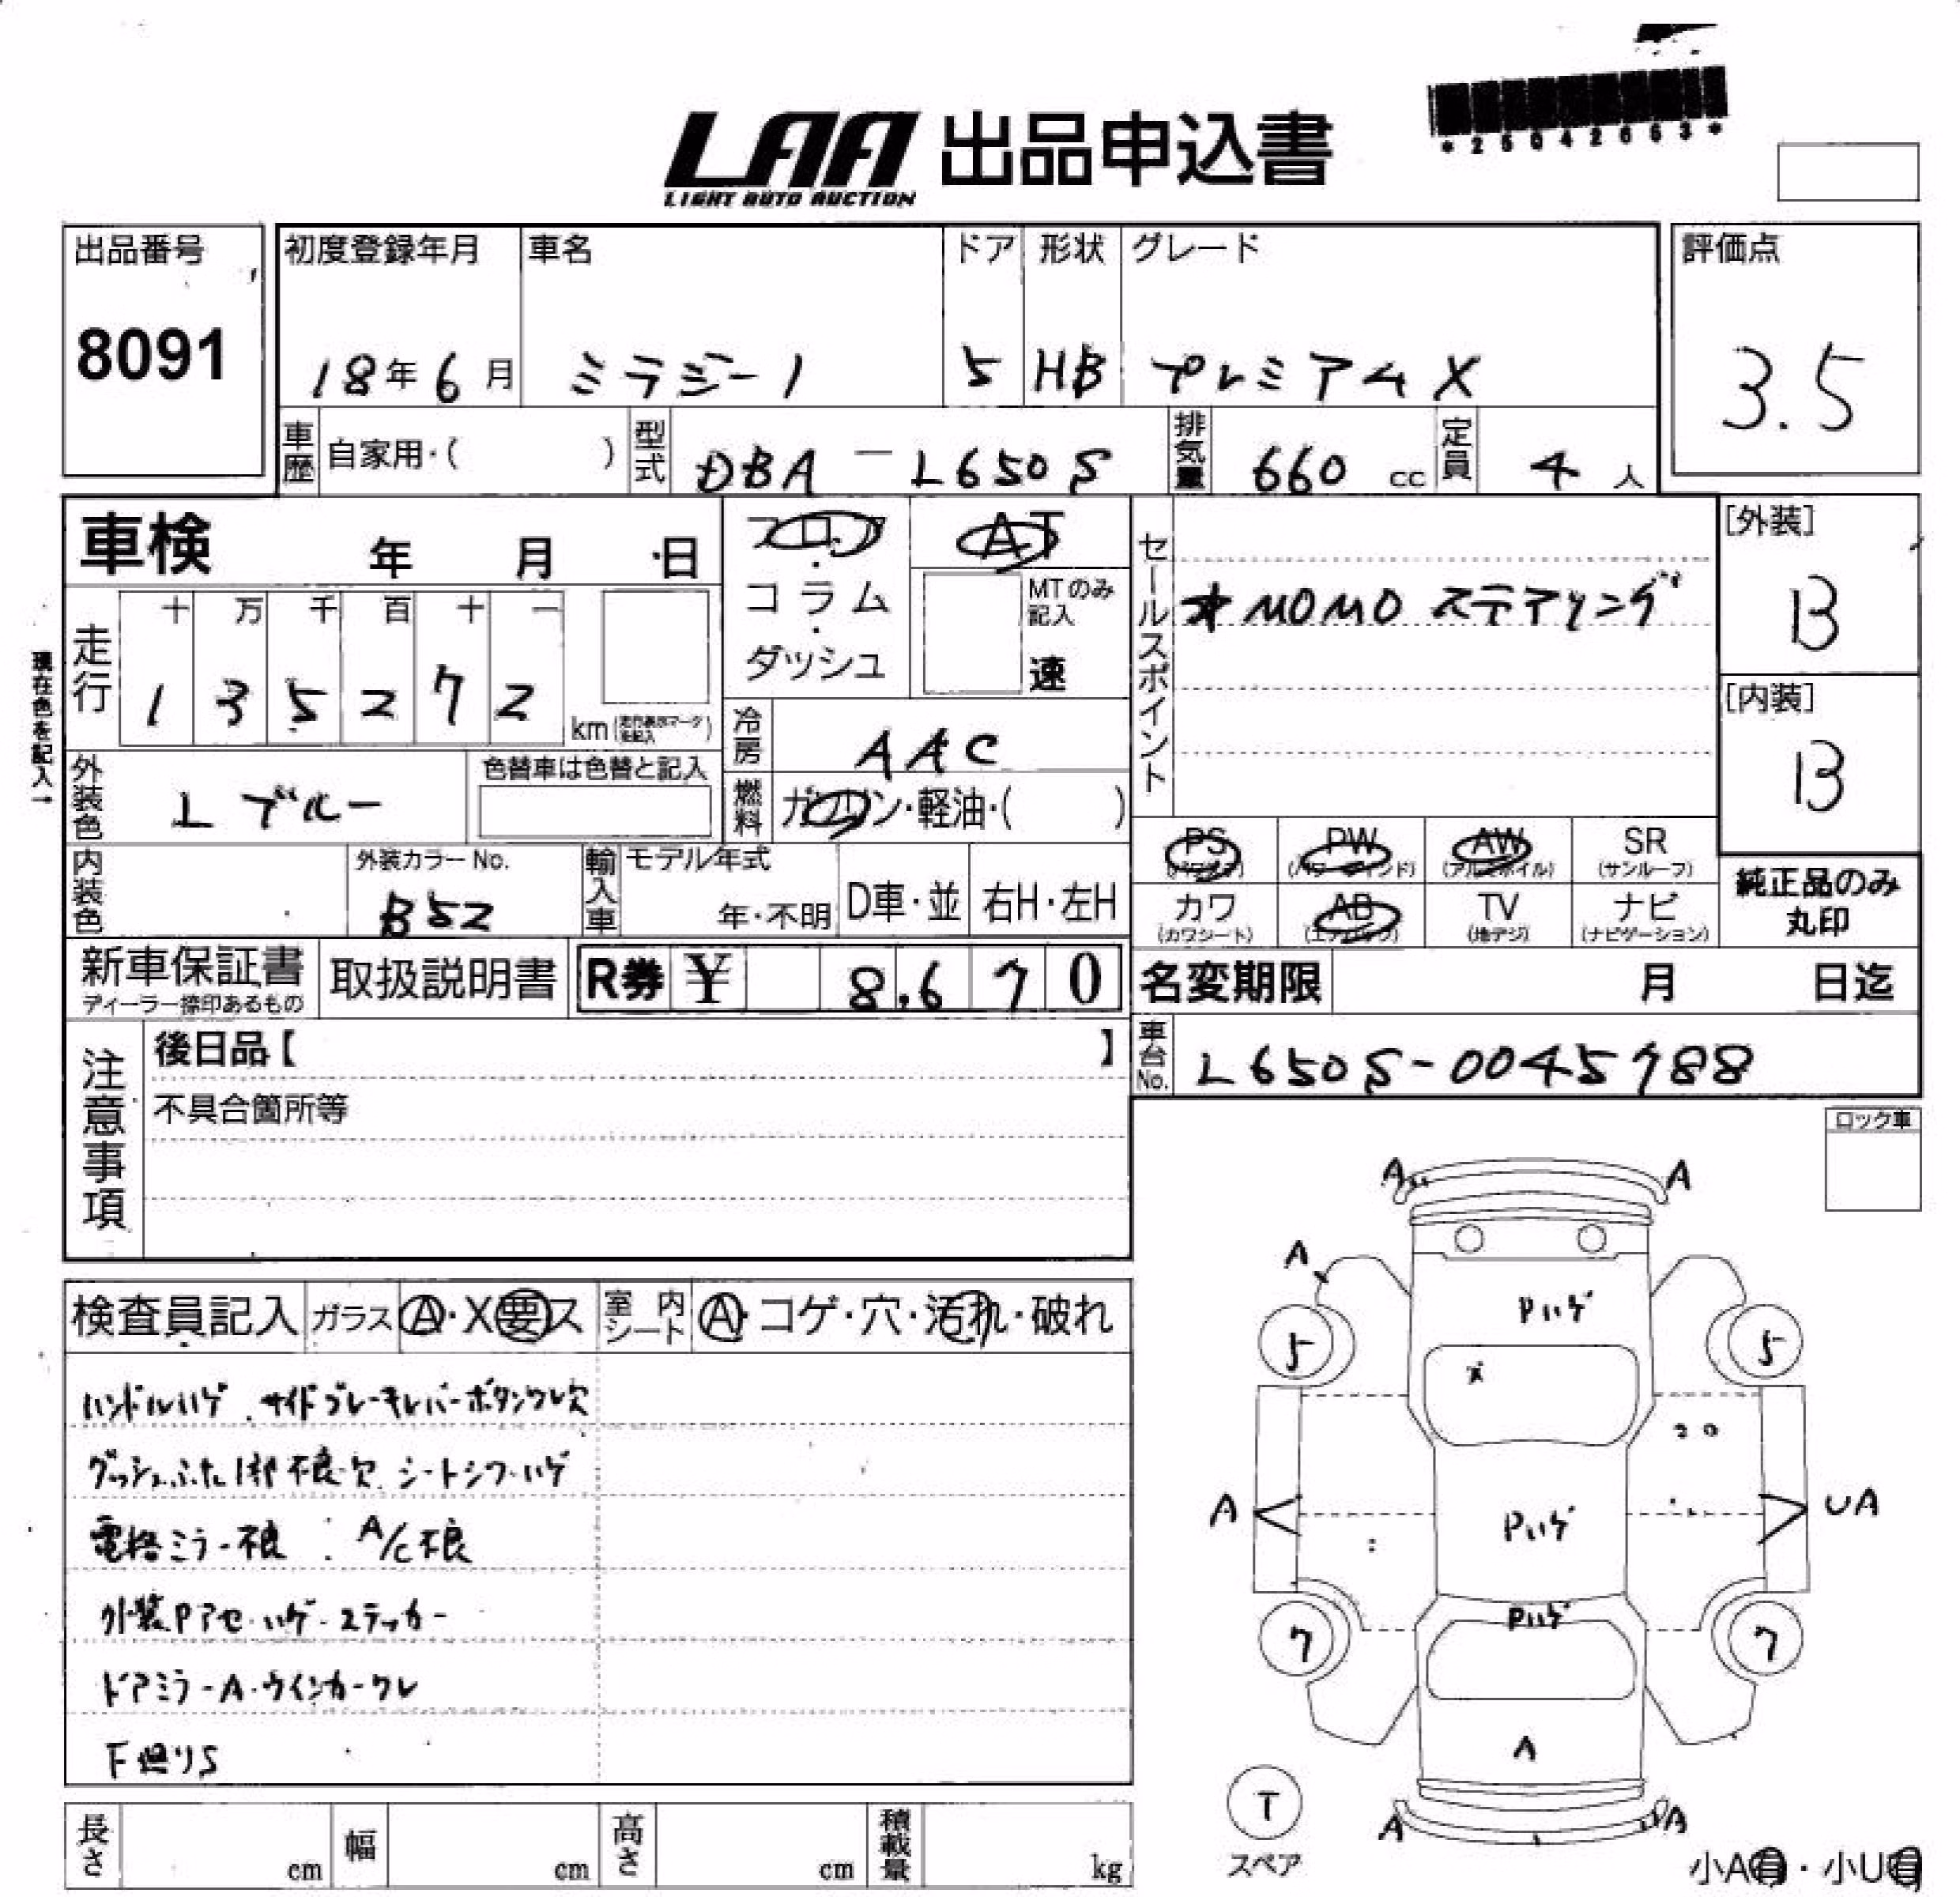 LAA 出品申込書
LIGHT AUTO AUCTION
*25042663*
出品番号
8091
初度登録年月
18年6月
車名
ミラジーノ
ドア
5
形状
HB
グレード
プレミアムX
評価点
3.5
車歴
自家用・( )
型式
DBA-L650S
排気量
660 cc
定員
4 人
車検 年 月 日
フロア
・
コラム
・
ダッシュ
AT
MTのみ
記入
速
セールスポイント
MOMO ステアリング
[外装]
B
[内装]
B
現在色を記入→
走行
十 万 千 百 十 一
1 3 5 2 7 2
km
冷房
AAC
燃料
ガソリン・軽油・( )
外装色
Lブルー
色替車は色替と記入
内装色
外装カラーNo.
B52
輸入車
モデル年式
年・不明
D車・並
右H・左H
PS
(パワステ)
PW
(パワーウィンド)
AW
(アルミホイル)
SR
(サンルーフ)
カワ
(カワシート)
AB
(エアバック)
TV
(地デジ)
ナビ
(ナビゲーション)
純正品のみ
丸印
新車保証書
ディーラー捺印あるもの
取扱説明書
R券 ¥ 8,670
名変期限 月 日迄
車台No.
L650S-0045788
注意事項
後日品【 】
不具合箇所等
ロック車
検査員記入
ガラス
A・X要ス
室内シート
A・コゲ・穴・汚れ・破れ
ハンドルハゲ.サイドブレーキレバーボタンワレ欠
ダッシュふた1部不良・欠.シートシワ・ハゲ
電格ミラー不良 A/C不良
外装Pアセ・ハゲ・ステッカー
ドアミラーA・ウインカーワレ
F廻りS
A A
A
Pハゲ
5 5
X
A Pハゲ UA
Pハゲ
7 7
A
T
スペア
A A
小A有・小U有
長さ cm
幅 cm
高さ cm
積載量 kg